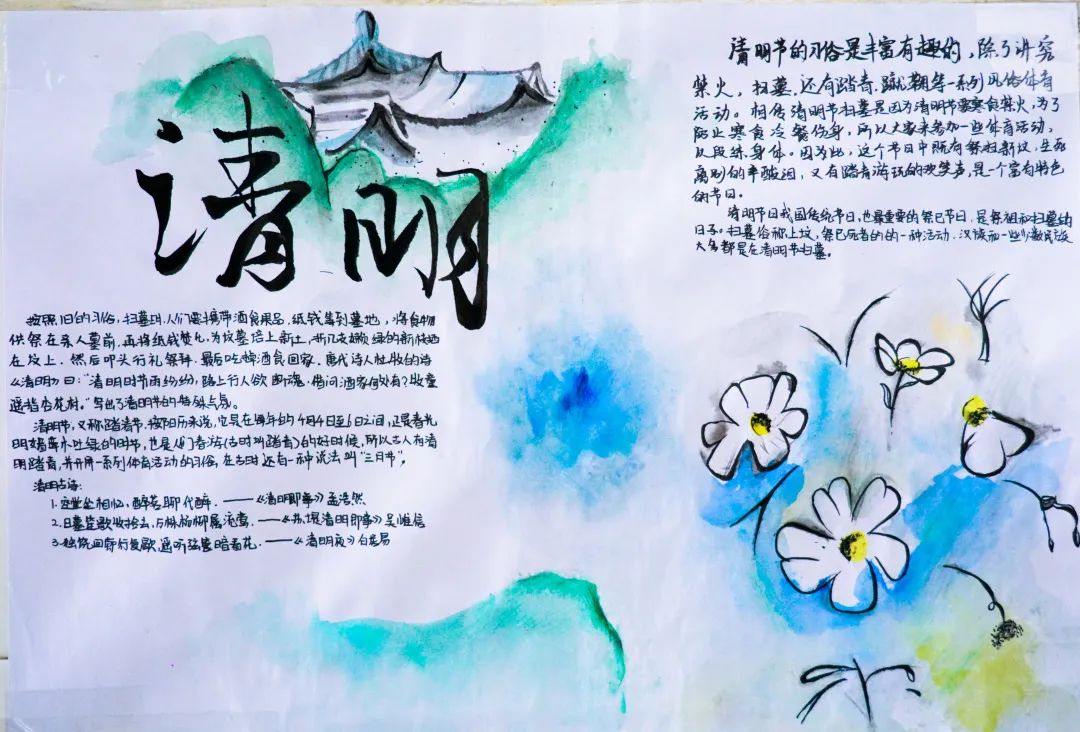 清明
清明节的习俗是丰富有趣的,除了讲究
禁火,扫墓,还有踏青、蹴鞠等一系列风俗体育
活动。相传清明节扫墓是因为清明节要寒食禁火,为了
防止寒食冷餐伤身,所以大家来参加一些体育活动,
以段练身体。因为此,这个节日中既有祭扫新坟,生死
离别的辛酸泪,又有踏青游玩的欢笑声,是一个富有特色
的节日。
清明节日我国传统节日,也最重要的祭已节日,是祭祖和扫墓的
日子。扫墓俗称上坟,祭已死者的的一种活动.汉族和一些少数民族
大多都是在清明节扫墓。
按照旧的习俗,扫墓时,人们要携带酒食果品,纸钱等到墓地,将食物
供祭在亲人墓前,再将纸钱焚化,为坟墓培上新土,折几支嫩绿的新枝插
在坟上,然后叩头行礼祭拜,最后吃掉酒食回家,唐代诗人杜牧的诗
《清明》曰:“清明时节雨纷纷,路上行人欲断魂,借问酒家何处有?牧童
遥指杏花村。”写出了清明节的特殊气氛。
清明节,又称踏青节,按阳历来说,它是在每年的4月4日至6日之间,正是春光
明媚草木吐绿的时节,也是人们春游(古时叫踏青)的好时候,所以古人有清
明踏青,并开展一系列体育活动的习俗,在古时还有一种说法叫“三月节”。
清明古诗:
1.空堂坐相忆,酌茗聊代醉.——《清明即事》孟浩然
2.日暮笙歌收拾去,万株杨柳属流莺.——《苏堤清明即事》吴惟信
3.独绕回廊行复歇,遥听弦管暗看花.——《清明夜》白居易